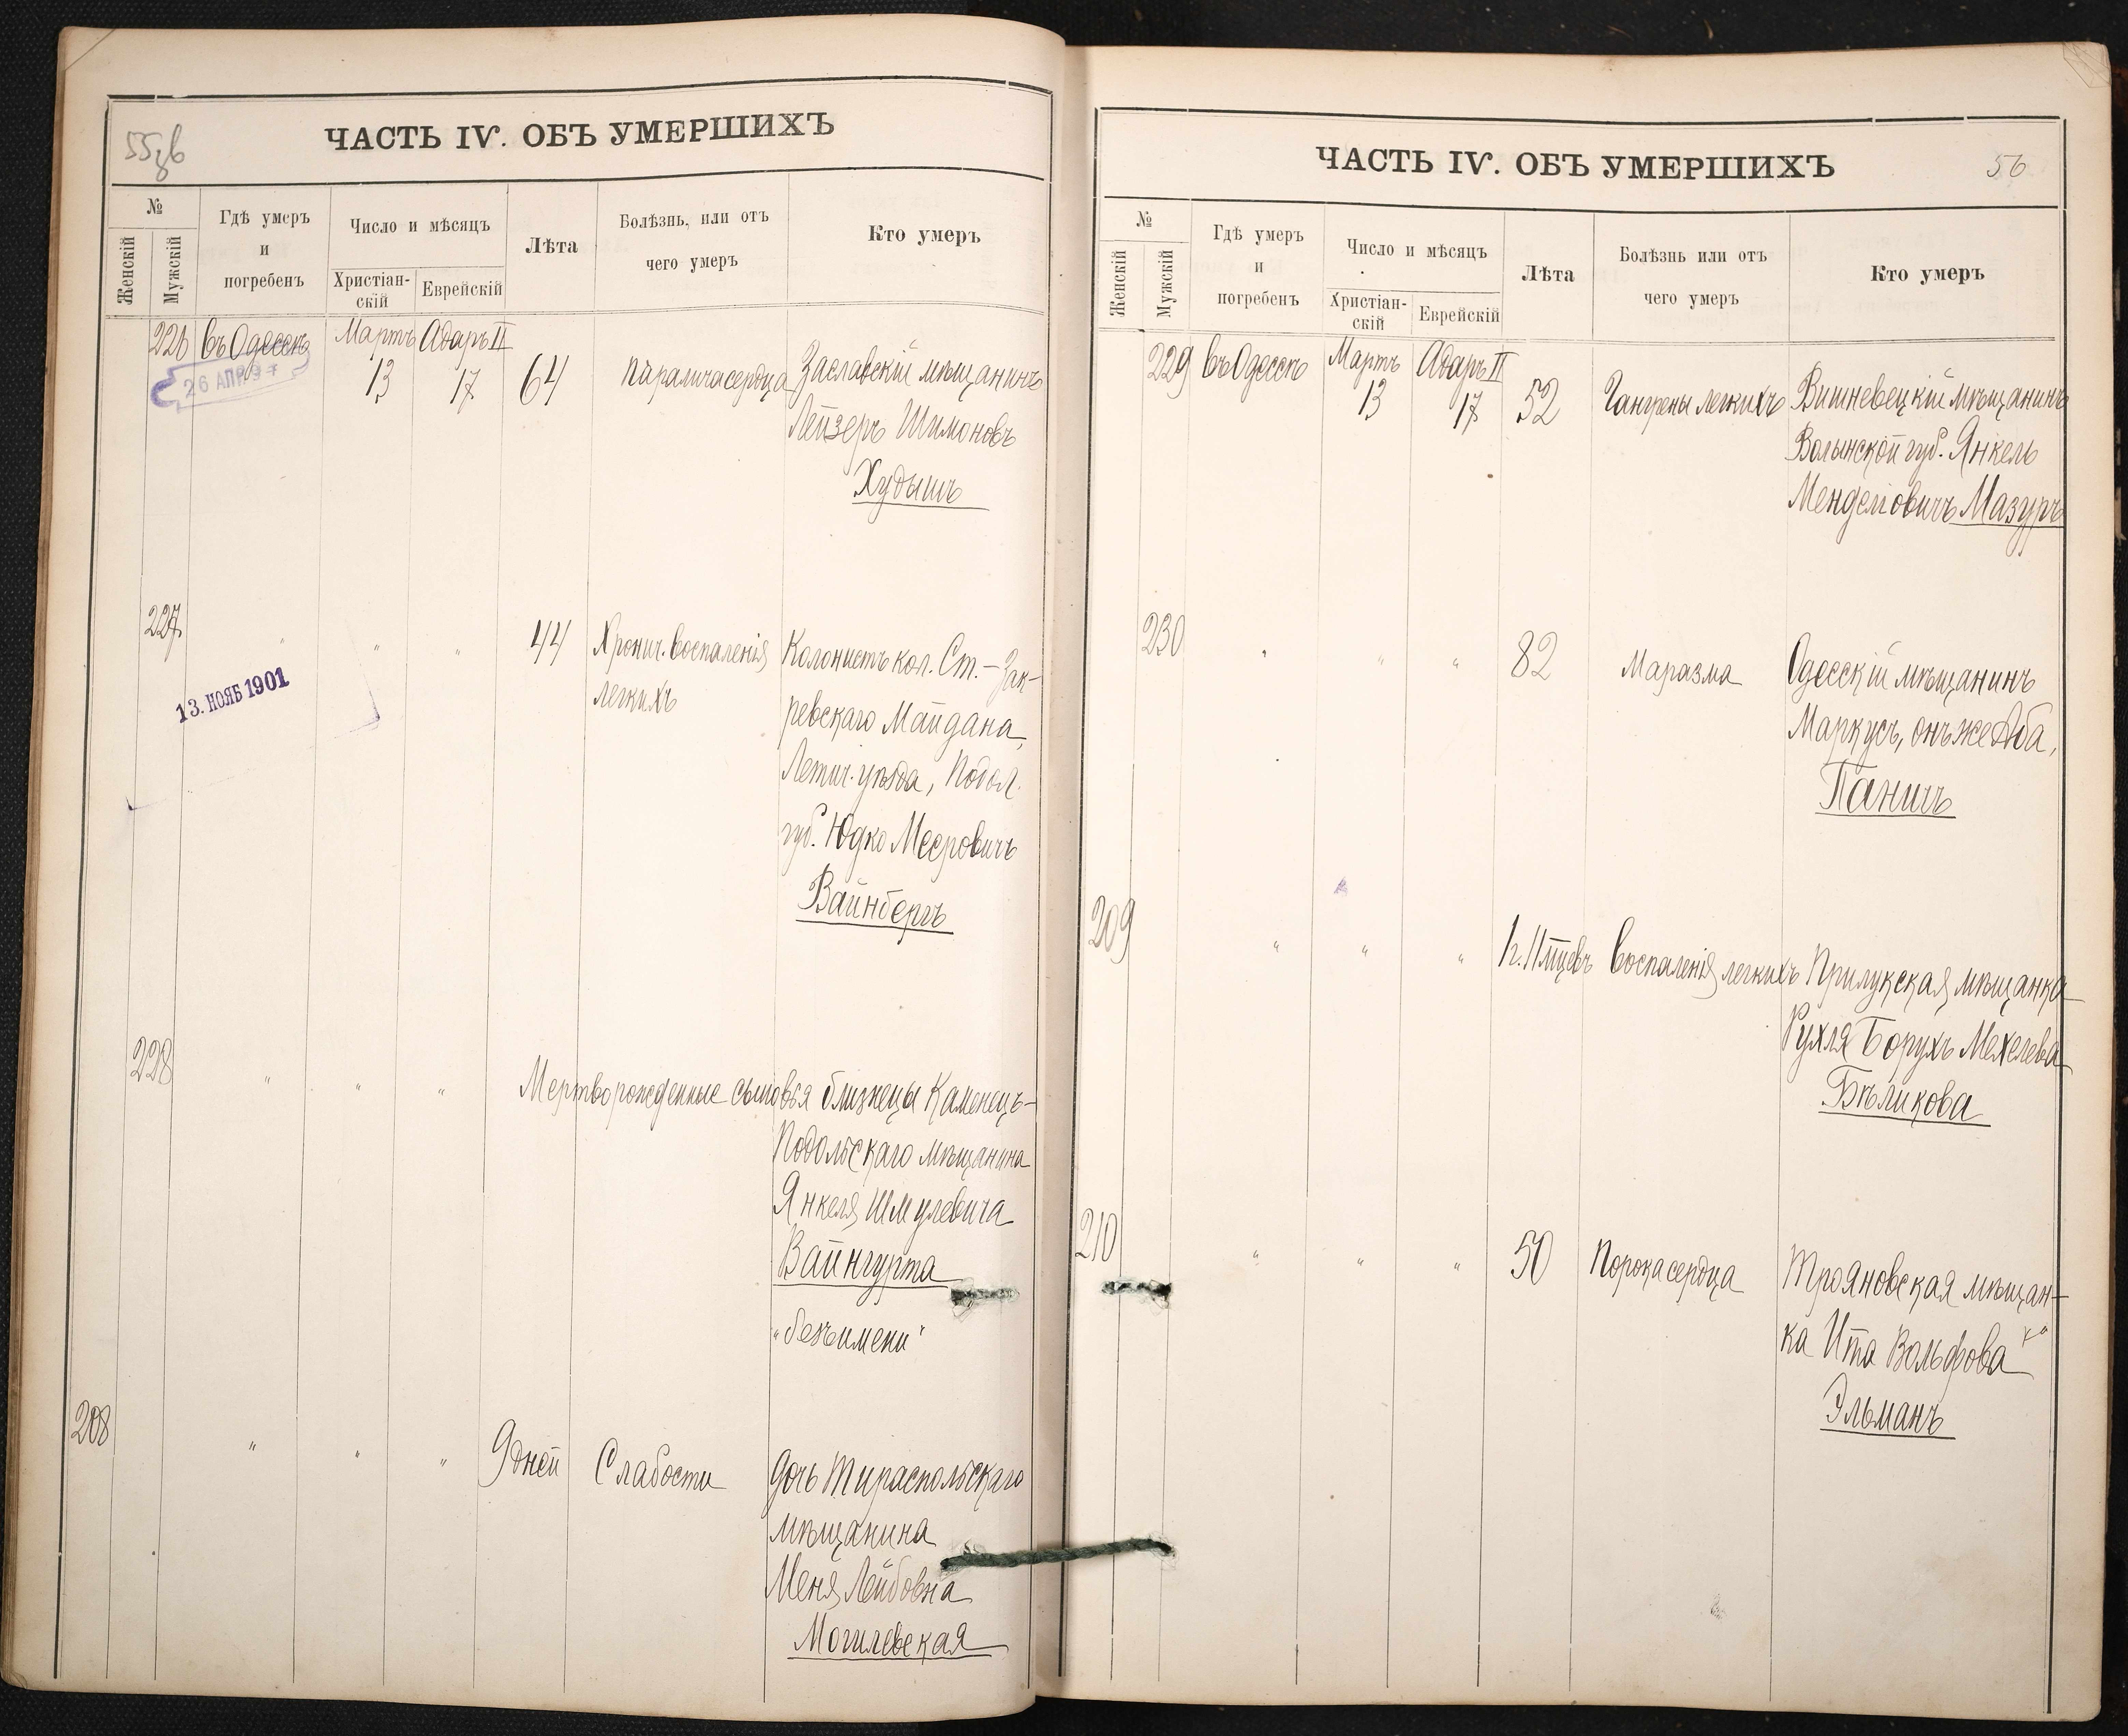 55 зв
ЧАСТЬ IV. ОБЪ УМЕРШИХЪ
№
Женскій
Мужскій
Гдѣ умеръ
и
погребенъ
Число и мѣсяцъ
Христіан-
скій
Еврейскій
Лѣта
Болѣзнь, или отъ
чего умеръ
Кто умеръ
226 въ Одессѣ Мартъ Адаръ II
13 17 64 паралича сердца Заславскій мѣщанинъ
26 АПР
Лейзеръ Шимоновъ
Худышъ
227 " " " 44 Хронич. воспаленія Колонистъ кол. Ст.-Зак-
легкихъ ревскаго Майдана,
13. НОЯБ 1901
Летич. уѣзда, Подол.
губ. Юдко Меєровичъ
Вайнбергъ
228 " " " Мертворожденные сыновья близнецы Каменецъ-
Подольскаго мѣщанина
Янкеля Шмулевича
Вайнгурта
"безъ имени"
208 " " " 9 дней Слабости Дочь Тираспольскаго
мѣщанина
Меня Лейбовна
Могилевская
ЧАСТЬ IV. ОБЪ УМЕРШИХЪ
56
№
Женскій
Мужскій
Гдѣ умеръ
и
погребенъ
Число и мѣсяцъ
Христіан-
скій
Еврейскій
Лѣта
Болѣзнь или отъ
чего умеръ
Кто умеръ
229 въ Одессѣ Мартъ Адаръ II
13 17 52 Гангрены легкихъ Вишневецкій мѣщанинъ
Волынской губ. Янкель
Менделіовичъ Мазуръ
230 " " " 82 Маразма Одесскій мѣщанинъ
Маркусъ, онъ же Аба,
Паничъ
209 " " " 1 г. 11 мцевъ Воспаленія легкихъ Прилукская мѣщанка
Рухля Борухъ Мехелева
Бѣликова
210 " " " 50 Порока сердца Трояновская мѣщан-
ка Ита Вольфова
Эльманъ